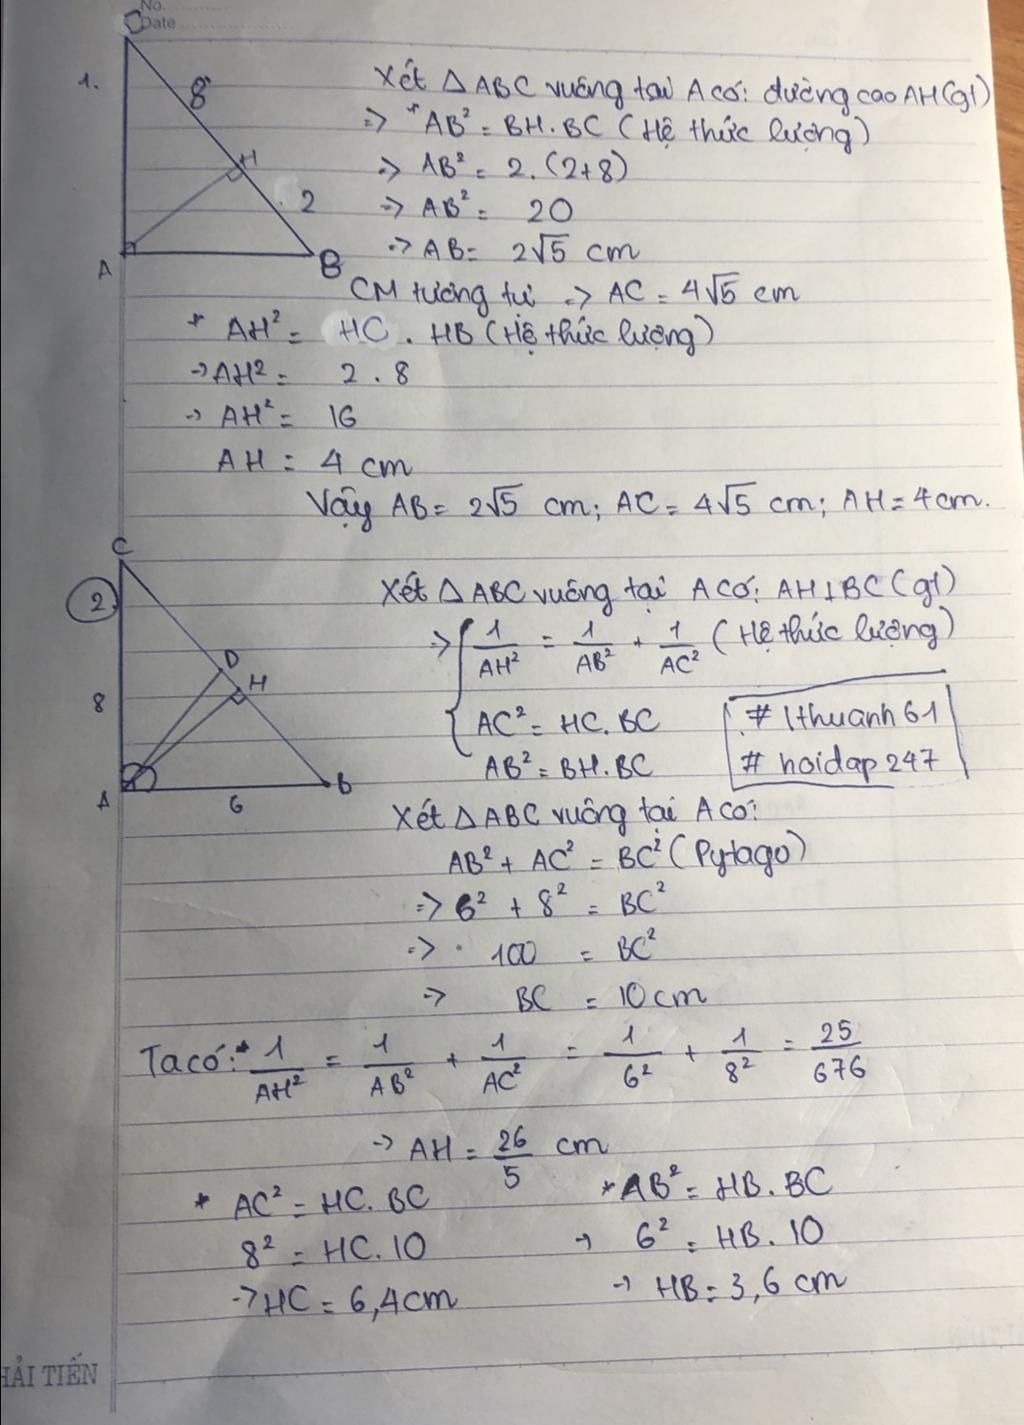 No.
Date
1.
C
8
H
2
A
B
Xét △ABC vuông tại A có: đường cao AH(gt)
=> * AB² = BH.BC (Hệ thức lượng)
=> AB² = 2.(2+8)
=> AB² = 20
=> AB = 2√5 cm
CM tương tự => AC = 4√5 cm
* AH² = HC . HB (Hệ thức lượng)
-> AH² = 2 . 8
-> AH² = 16
AH = 4 cm
Vậy AB = 2√5 cm; AC = 4√5 cm; AH = 4cm.
C
2.
D
H
8
A
6
B
Xét △ABC vuông tại A có: AH⊥BC (gt)
=> { 1/AH² = 1/AB² + 1/AC² (Hệ thức lượng)
AC² = HC.BC
AB² = BH.BC
# 1thuanh61
# hoidap247
Xét △ABC vuông tại A có:
AB² + AC² = BC² (Pytago)
=> 6² + 8² = BC²
=> 100 = BC²
=> BC = 10cm
Ta có: * 1/AH² = 1/AB² + 1/AC² = 1/6² + 1/8² = 25/676
-> AH = 26/5 cm
* AC² = HC.BC
8² = HC.10
-> HC = 6,4cm
* AB² = HB.BC
-> 6² = HB.10
-> HB = 3,6 cm
HẢI TIẾN